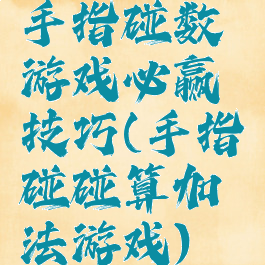 手指碰数
游戏必赢
技巧(手指
碰碰算加
法游戏)